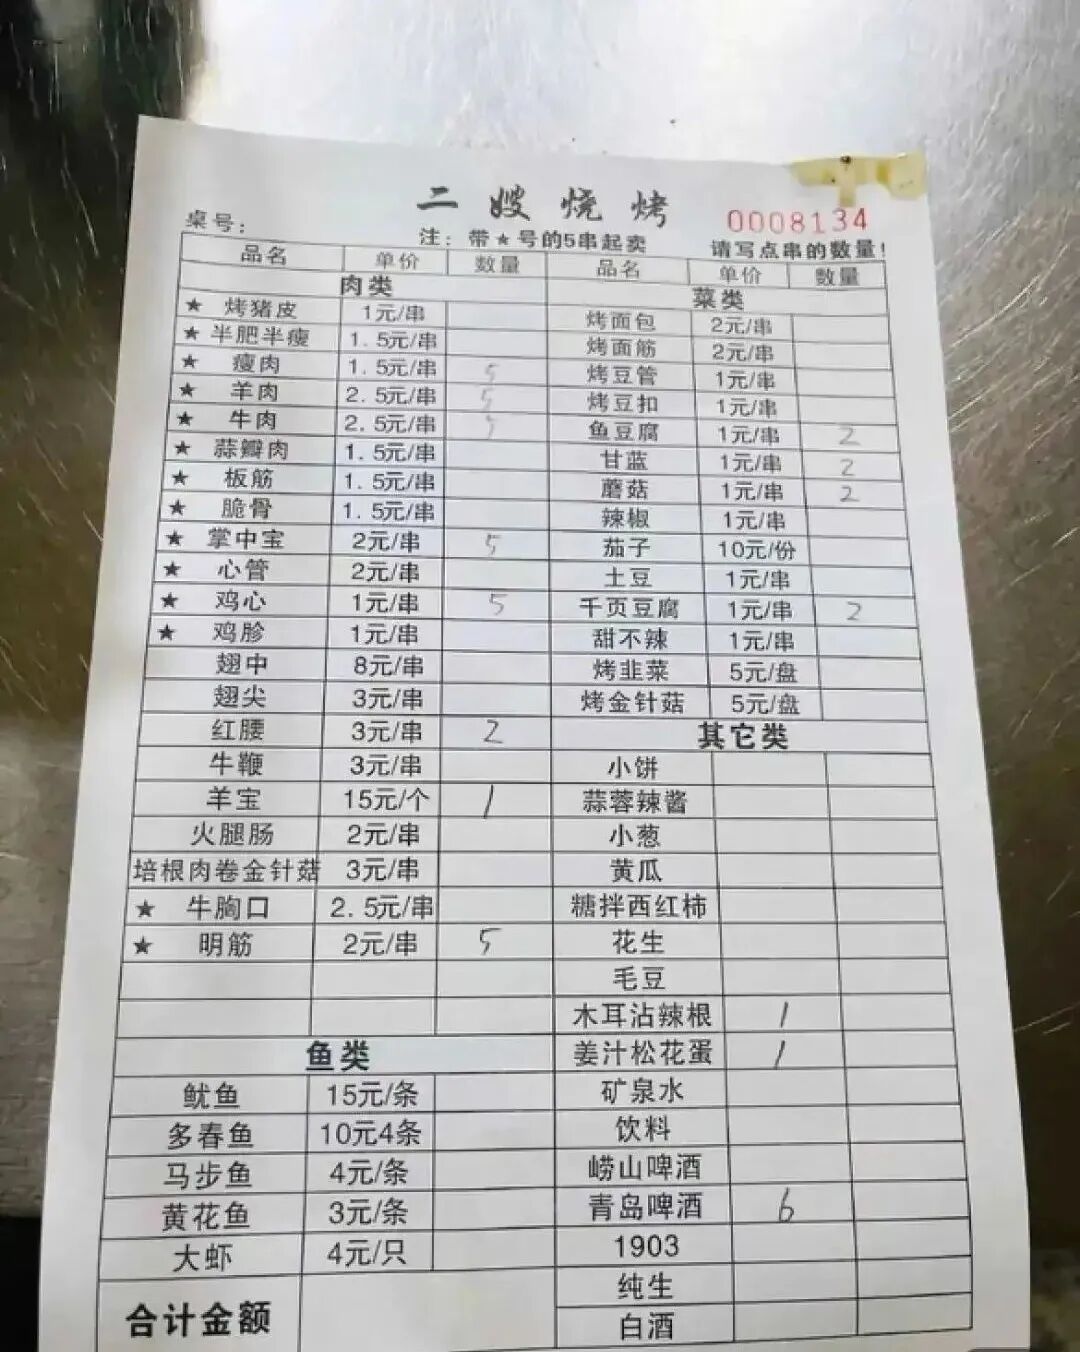 二嫂烧烤
0008134
桌号：
注：带★号的5串起卖
请写点串的数量！
品名 单价 数量 品名 单价 数量
肉类 菜类
★ 烤猪皮 1元/串
★ 半肥半瘦 1.5元/串
★ 瘦肉 1.5元/串 5
★ 羊肉 2.5元/串 5
★ 牛肉 2.5元/串 5
★ 蒜瓣肉 1.5元/串
★ 板筋 1.5元/串
★ 脆骨 1.5元/串
★ 掌中宝 2元/串 5
★ 心管 2元/串
★ 鸡心 1元/串 5
★ 鸡胗 1元/串
翅中 8元/串
翅尖 3元/串
红腰 3元/串 2
牛鞭 3元/串
羊宝 15元/个 1
火腿肠 2元/串
培根肉卷金针菇 3元/串
★ 牛胸口 2.5元/串
★ 明筋 2元/串 5
鱼类
鱿鱼 15元/条
多春鱼 10元4条
马步鱼 4元/条
黄花鱼 3元/条
大虾 4元/只
合计金额
烤面包 2元/串
烤面筋 2元/串
烤豆管 1元/串
烤豆扣 1元/串
鱼豆腐 1元/串 2
甘蓝 1元/串 2
蘑菇 1元/串 2
辣椒 1元/串
茄子 10元/份
土豆 1元/串
千页豆腐 1元/串 2
甜不辣 1元/串
烤韭菜 5元/盘
烤金针菇 5元/盘
其它类
小饼
蒜蓉辣酱
小葱
黄瓜
糖拌西红柿
花生
毛豆
木耳沾辣根 1
姜汁松花蛋 1
矿泉水
饮料
崂山啤酒
青岛啤酒 6
1903
纯生
白酒